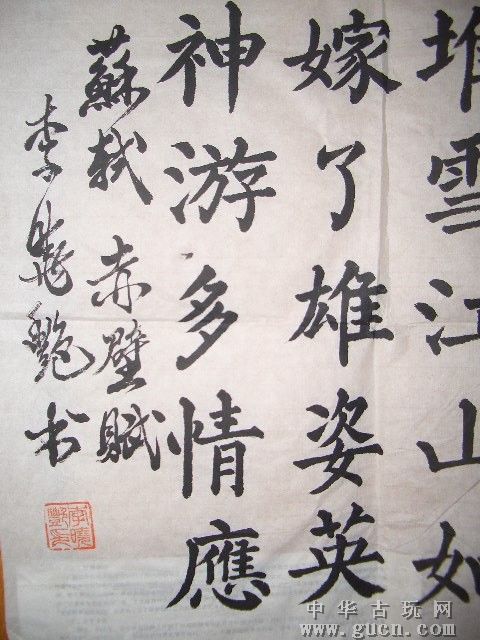 堆雪江山如
嫁了雄姿英
神游多情應
蘇軾 赤壁賦
李曉艷书
中华古玩网
www.gucn.com